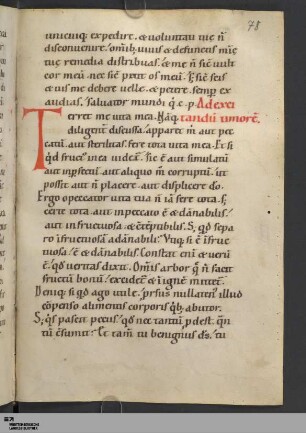 78
unicuiq; expedire. & voluntati tuę n̄
disconuenire. om̄ib; uiuis & defunctis mię
tuę remedia distribuas. & me n̄ sic uult
cor meū. nec sic petit os meū. s; sic scis
& uis me debere uelle. & petere. semp̄ ex
audias. Saluator mundi q̄ c̄ p Ad exci
Terret me uita mea. Nāq; tandū timorē.
diligent̄ discussa. apparet m̄ aut pec
catū. aut sterilitas. fere tota uita mea. Et si
qd fruct' in ea uidet̄. sic ē aut simulatū
aut inp̄fectū aut aliquo m̄ corruptū. ut
possit aut n̄ placere. aut displicere do.
Ergo o peccator uita tua n̄ iā fere tota. s;
certe tota. aut in peccato ē & dānabilis.
aut infructuosa & cōtēptibilis. S; qd sepa
ro īfructuosā a dānabili. Vtiq; si ē īfruc
tuosa. ē & dānabilis. Constat eni & uerū
ē. qd ueritas dixit. Omīs arbor q n̄ facit
fructū bonū. excidet̄ & ī ignē mittet̄.
Deniq; si qd ago utile. prsus nullaten' illud
cōpenso alimentis corporis qb; abutor.
S; q's pascit pecus. qd nec tantū p dest. qn
tū c̄sumit. Et tam̄ tu benignus ds. tu